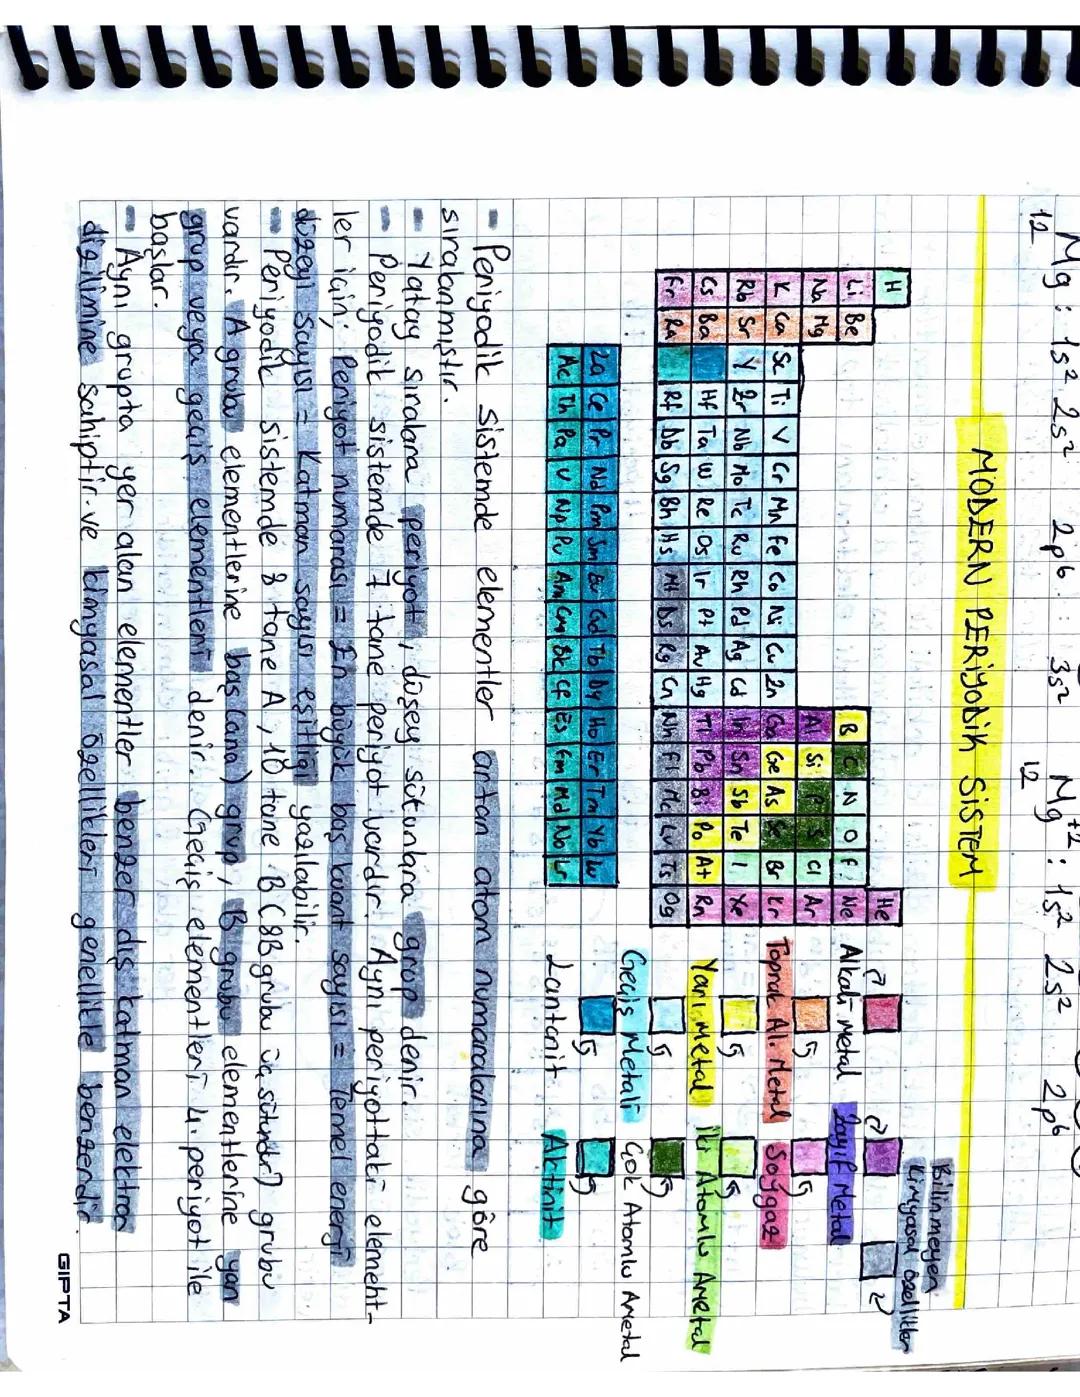 12Mg : 1s² 2s² 2p6 3s² 12Mg+2 : 1s² 2s² 2p6
MODERN PERİYODİK SİSTEM
H He
Li Be B C N O F Ne
Na Mg Al Si P S Cl Ar
K Ca Sc Ti V Cr Mn Fe Co Ni Cu Zn Ga Ge As Se Br Kr
Rb Sr Y Zr Nb Mo Tc Ru Rh Pd Ag Cd In Sn Sb Te I Xe
Cs Ba Hf Ta W Re Os Ir Pt Au Hg Tl Pb Bi Po At Rn
Fr Ra Rf Db Sg Bh Hs Mt Ds Rg Cn Nh Fl Mc Lv Ts Og
La Ce Pr Nd Pm Sm Eu Gd Tb Dy Ho Er Tm Yb Lu
Ac Th Pa U Np Pu Am Cm Bk Cf Es Fm Md No Lr
Bilinmeyen
kimyasal özellikler
Alkali Metal Zayıf Metal
Toprak Al. Metal Soygaz
Yarı Metal İki Atomlu Ametal
Geçiş Metali Çok Atomlu Ametal
Lantanit Aktinit
- Periyodik sistemde elementler artan atom numaralarına göre
sıralanmıştır.
- Yatay sıralara periyot, düşey sütunlara grup denir.
- Periyodik sistemde 7 tane periyot vardır. Aynı periyottaki element-
ler için; Periyot numarası = En büyük baş kuant sayısı = Temel enerji
düzeyi sayısı = Katman sayısı eşitliği yazılabilir.
- Periyodik sistemde 8 tane A, 10 tane B (8B grubu üç sütundur) grubu
vardır. A grubu elementlerine baş (ana) grup, B grubu elementlerine yan
grup veya geçiş elementleri denir. Geçiş elementleri 4. periyot ile
başlar.
- Aynı grupta yer alan elementler benzer dış katman elektron
dizilimine sahiptir ve kimyasal özellikleri genellikle benzerdir.
GIPTA